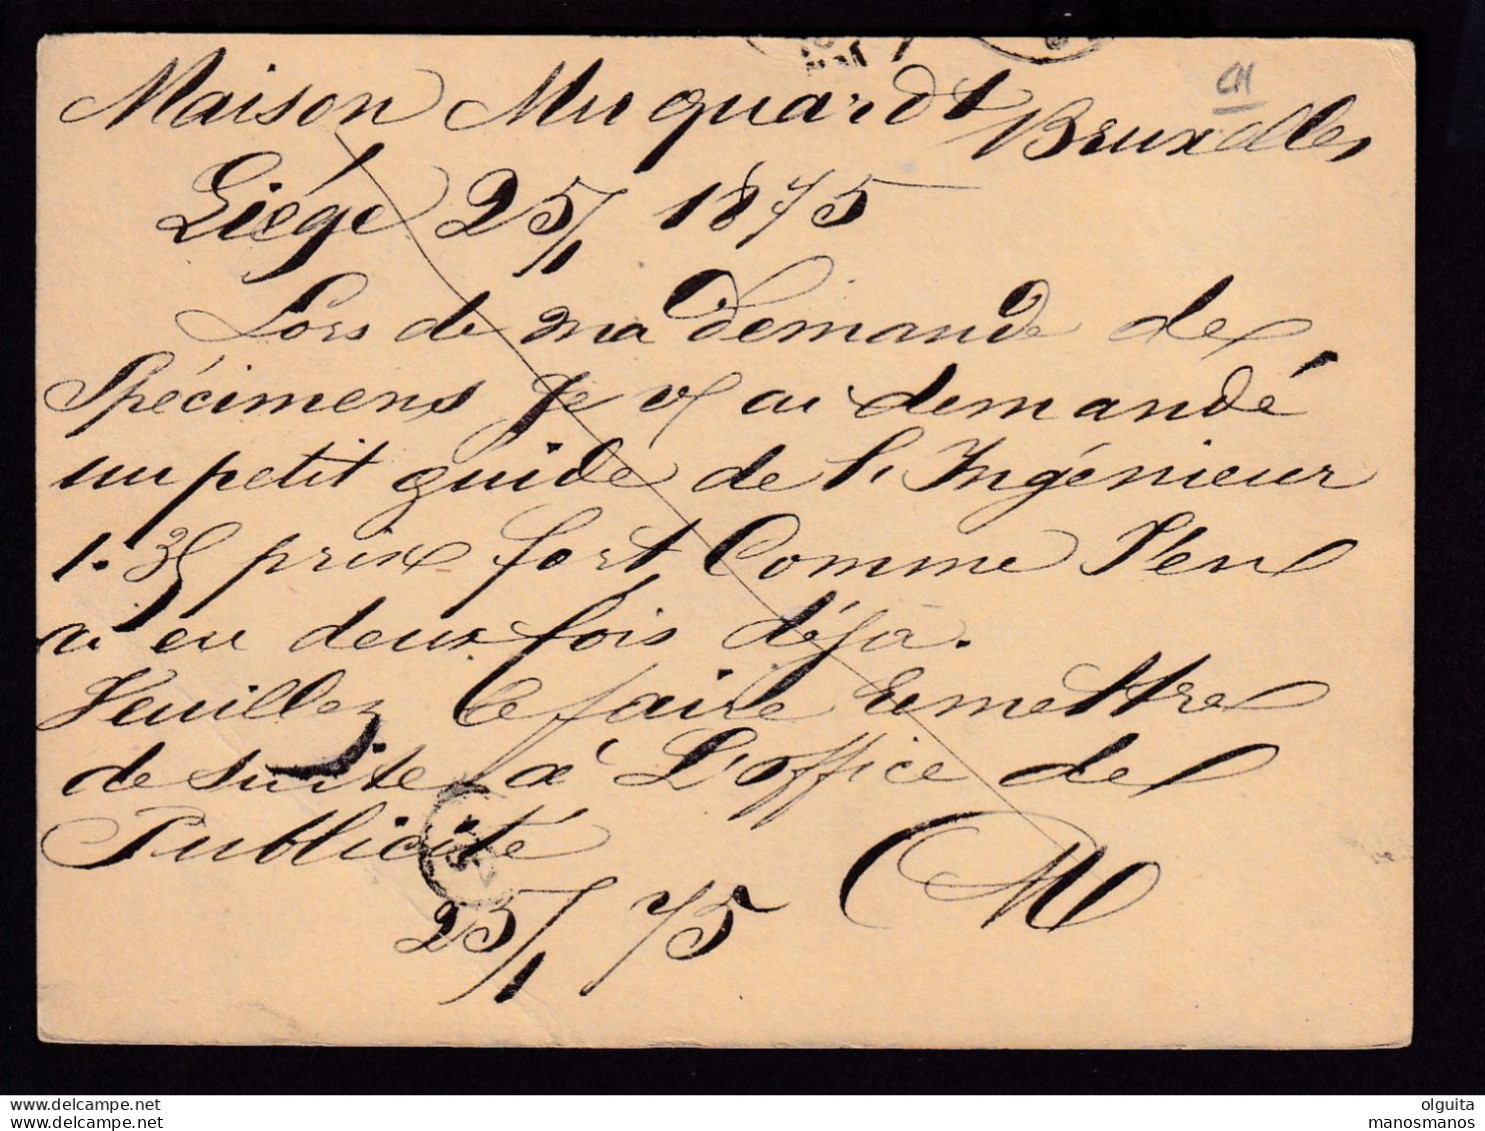 Maison Muquardt Bruxelles
CM
Liége 25/1 1875
Lors de ma demande de
Spécimens Je vs ai demandé
un petit guide de l'Ingénieur
1.35 prix fort, Comme J'en
ai eu deux fois déja.
Veuillez le faire remettre
de suite à L'office de
Publicité
25/1 75
olguita
manosmanos